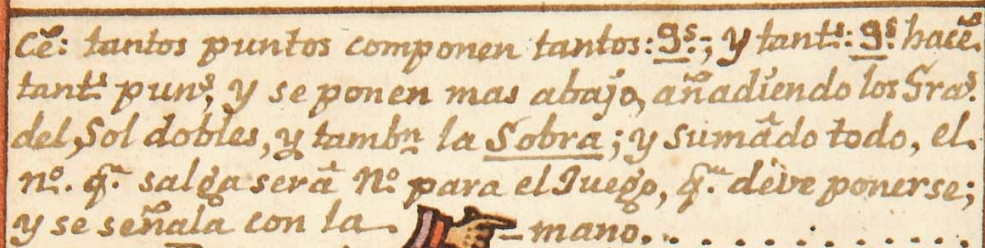 cẽ: tantos puntos componen tantos: 9.ˢ; y tant.ˢ: 9.ˢ hacẽ.
tant.ˢ pun.ˢ, y se ponen mas abajo, añadiendo los Gra.ˢ
del Sol dobles, y tamb.ⁿ la Sobra; y sumãdo todo, el
n.º q.ᵉ salga será N.º para el Juego, q.ᵉ deve ponerse;
y se señala con la mano.